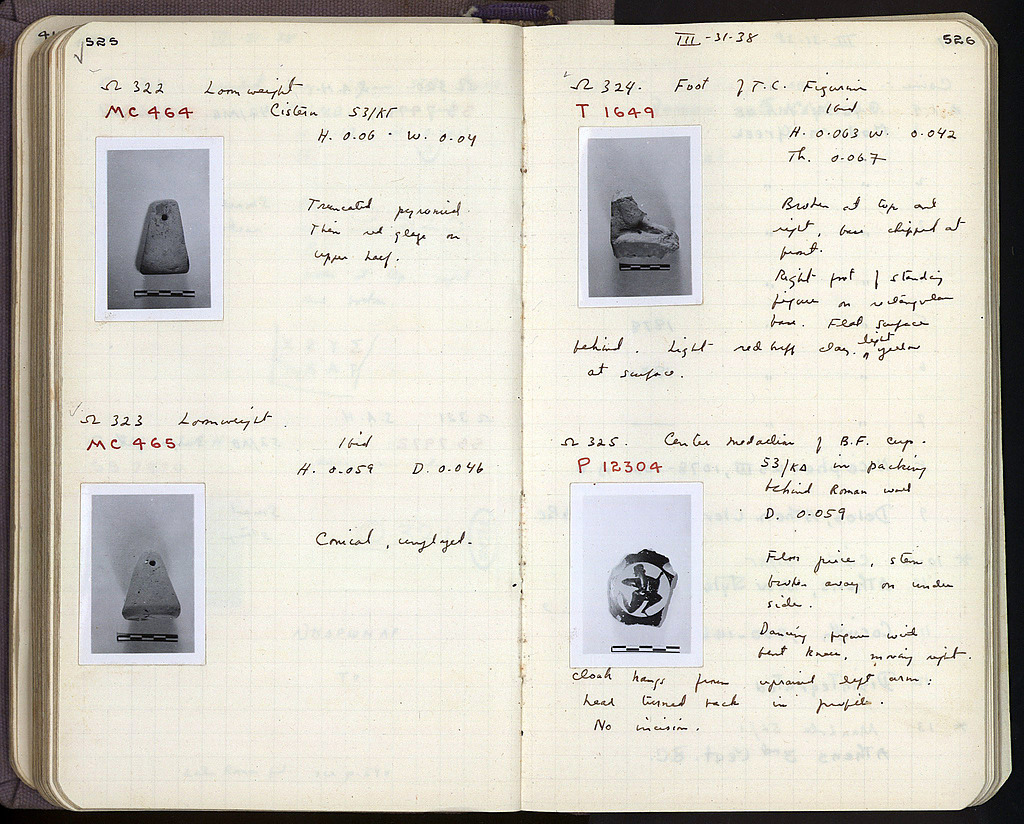 525
Ω 322 Loomweight
MC 464 Cistern 53/ΚΓ
H. 0.06 - W. 0.04
Truncated pyramid.
Thin red glaze on
upper half.
Ω 323 Loomweight.
MC 465 Ibid
H. 0.059 D. 0.046
Conical, unglazed.
III -31-38 526
Ω 324. Foot of T.C. Figurine
T 1649 Ibid
H. 0.063 W. 0.042
Th. 0.067
Broken at top and
right, base chipped at
front.
Right foot of standing
figure on rectangular
base. Flat surface
behind. Light red buff clay. light yellow
at surface.
Ω 325. Center medallion of B.F. cup.
P 12304 53/ΚΔ in packing
behind Roman wall
D. 0.059
Floor piece, stem
broken away on under
side.
Dancing figure with
bent knees, moving right.
cloak hangs from upraised left arm;
head turned back in profile.
No incision.